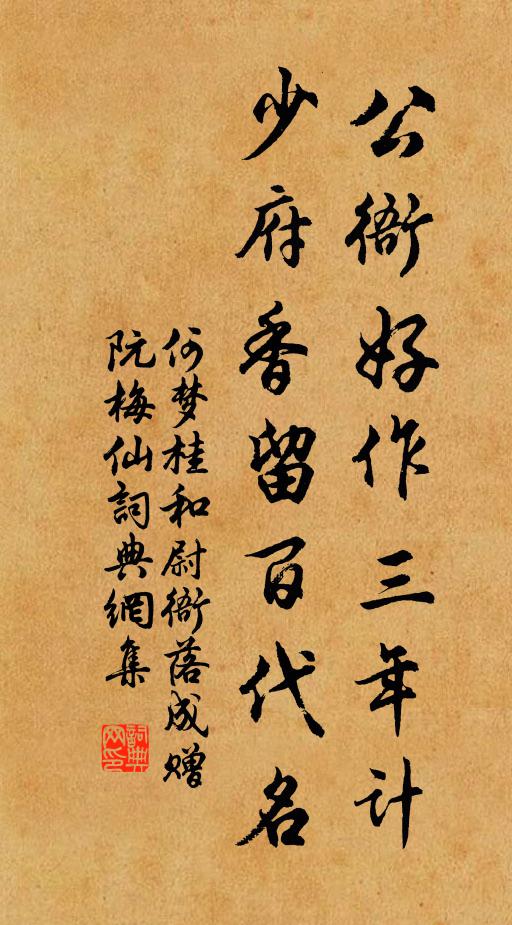 公衙好作三年計
少府香留百代名
何梦桂和尉衙落成赠
阮梅仙詞典網集
詞典网印